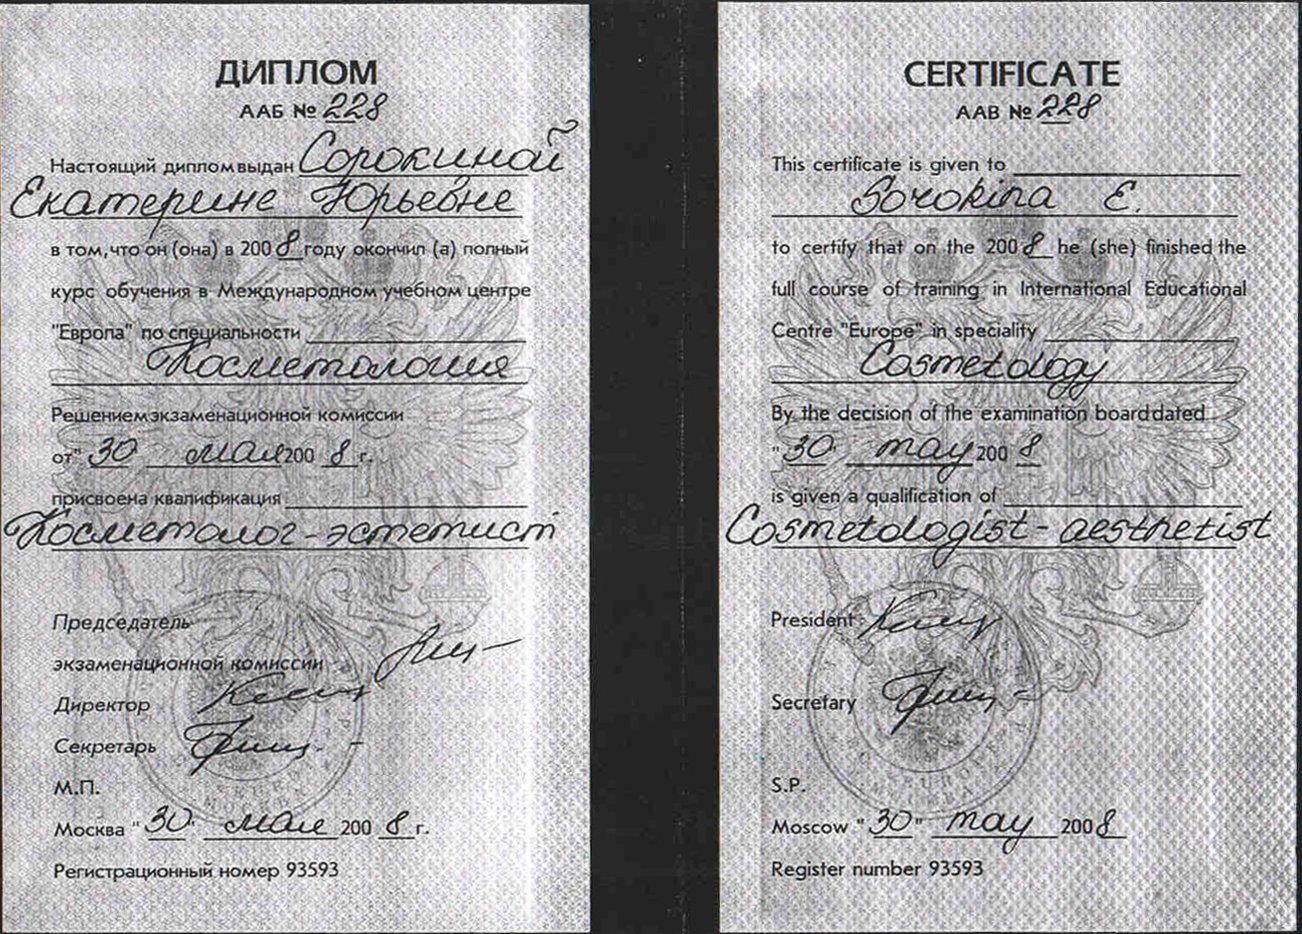 ДИПЛОМ
ААБ № 228
Настоящий диплом выдан Сорокиной
Екатерине Юрьевне
в том, что он (она) в 2008 году окончил (а) полный
курс обучения в Международном учебном центре
"Европа" по специальности
Косметология
Решением экзаменационной комиссии
от "30 мая 2008 г.
присвоена квалификация
Косметолог-эстетист
Председатель
экзаменационной комиссии
Директор
Секретарь
М.П.
Москва "30" мая 2008 г.
Регистрационный номер 93593
CERTIFICATE
AAB № 228
This certificate is given to
Sorokina E.
to certify that on the 2008 he (she) finished the
full course of training in International Educational
Centre "Europe" in speciality
Cosmetology
By the decision of the examination board dated
"30" may 2008
is given a qualification of
Cosmetologist-aesthetist
President
Secretary
S.P.
Moscow "30" may 2008
Register number 93593